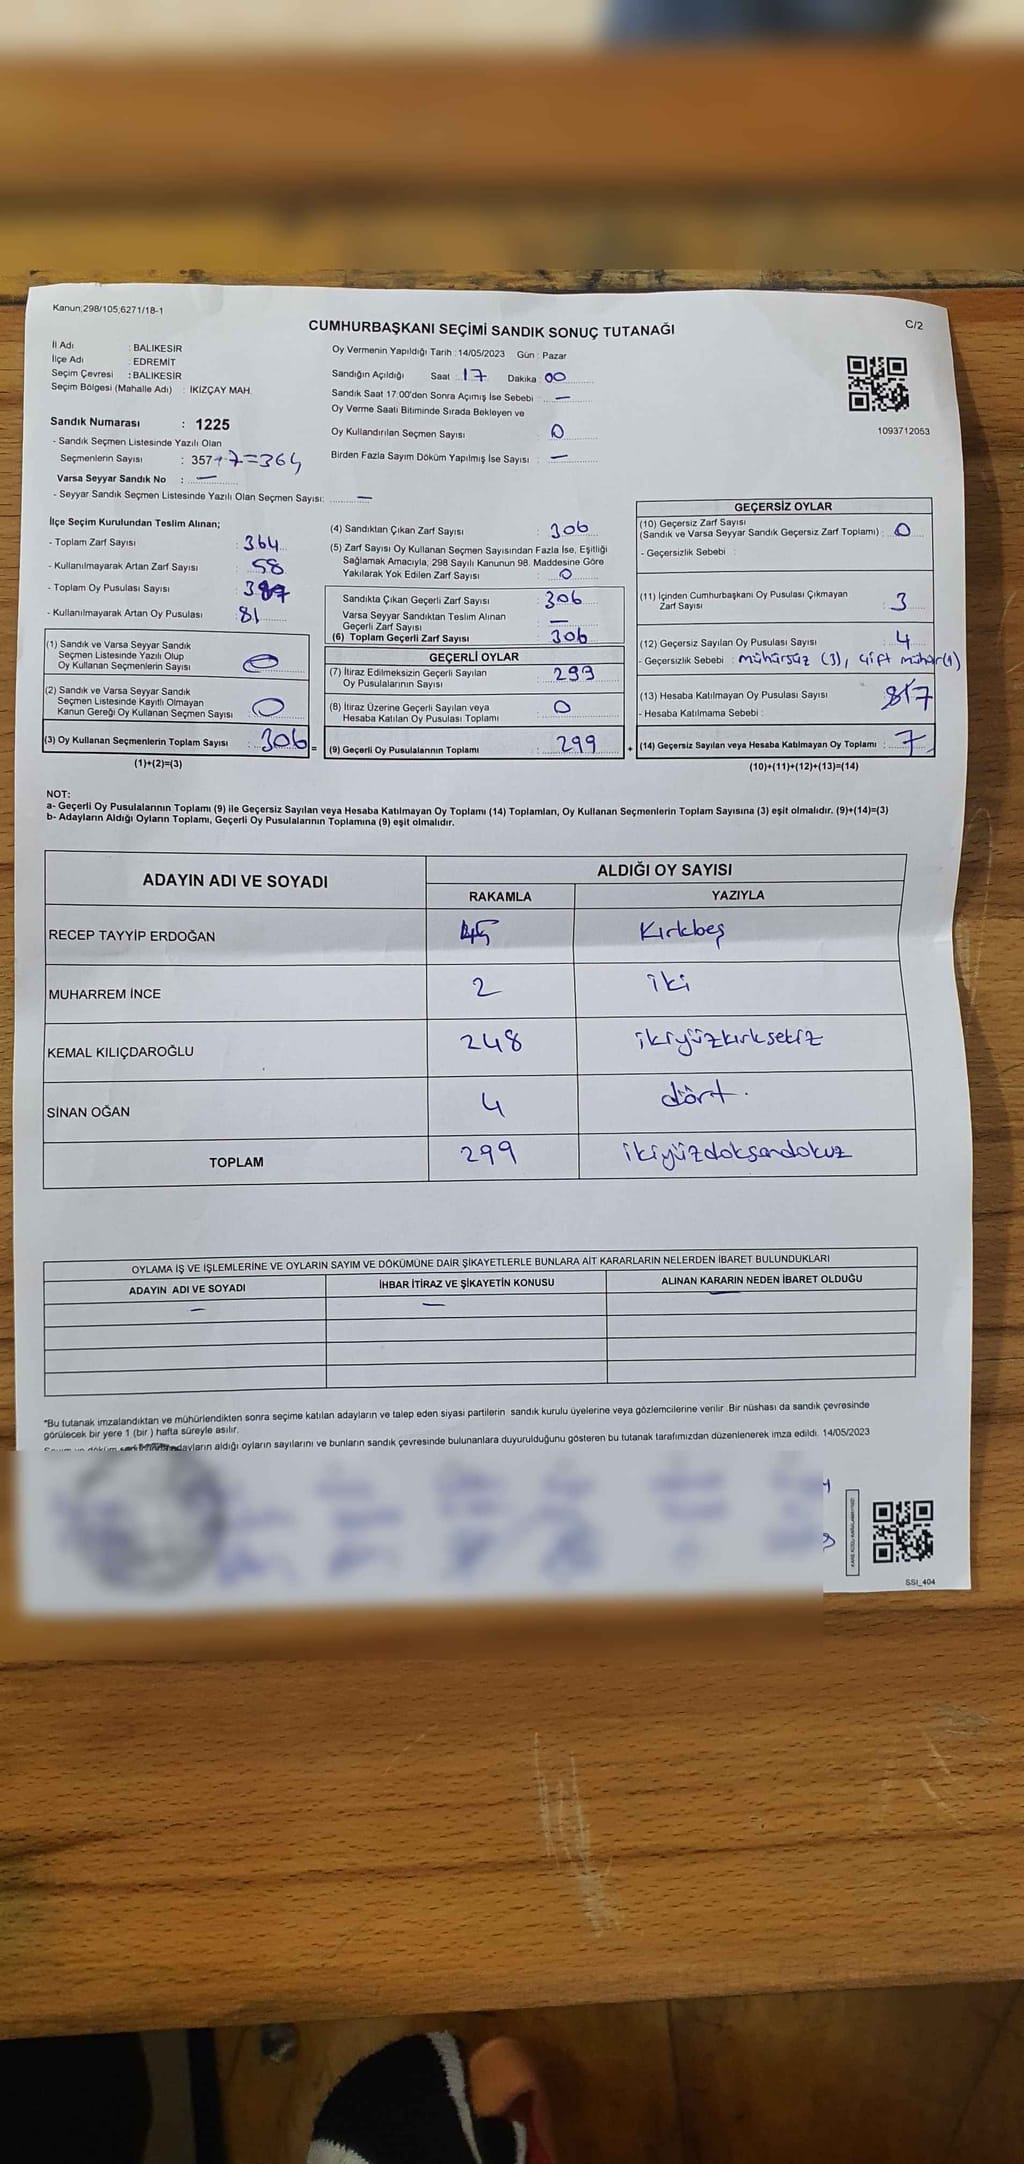 Kanun;298/105,6271/18-1
CUMHURBAŞKANI SEÇİMİ SANDIK SONUÇ TUTANAĞI
C/2
İl Adı : BALIKESİR
İlçe Adı : EDREMİT
Seçim Çevresi : BALIKESİR
Seçim Bölgesi (Mahalle Adı) : İKİZÇAY MAH.
Oy Vermenin Yapıldığı Tarih : 14/05/2023 Gün : Pazar
Sandığın Açıldığı Saat : 17 Dakika : 00
Sandık Saat 17:00'den Sonra Açımış İse Sebebi : —
Oy Verme Saati Bitiminde Sırada Bekleyen ve
Oy Kullandırılan Seçmen Sayısı : 0
Birden Fazla Sayım Döküm Yapılmış İse Sayısı : —
1093712053
Sandık Numarası : 1225
- Sandık Seçmen Listesinde Yazılı Olan
Seçmenlerin Sayısı : 357+7=364
Varsa Seyyar Sandık No : —
- Seyyar Sandık Seçmen Listesinde Yazılı Olan Seçmen Sayısı: —
İlçe Seçim Kurulundan Teslim Alınan;
- Toplam Zarf Sayısı : 364
- Kullanılmayarak Artan Zarf Sayısı : 58
- Toplam Oy Pusulası Sayısı :
- Kullanılmayarak Artan Oy Pusulası : 81
(1) Sandık ve Varsa Seyyar Sandık
Seçmen Listesinde Yazılı Olup
Oy Kullanan Seçmenlerin Sayısı
(2) Sandık ve Varsa Seyyar Sandık
Seçmen Listesinde Kayıtlı Olmayan
Kanun Gereği Oy Kullanan Seçmen Sayısı : 0
(3) Oy Kullanan Seçmenlerin Toplam Sayısı : 306 =
(1)+(2)=(3)
(4) Sandıktan Çıkan Zarf Sayısı : 306
(5) Zarf Sayısı Oy Kullanan Seçmen Sayısından Fazla İse, Eşitliği
Sağlamak Amacıyla, 298 Sayılı Kanunun 98. Maddesine Göre
Yakılarak Yok Edilen Zarf Sayısı : 0
Sandıkta Çıkan Geçerli Zarf Sayısı : 306
Varsa Seyyar Sandıktan Teslim Alınan
Geçerli Zarf Sayısı : —
(6) Toplam Geçerli Zarf Sayısı : 306
GEÇERLİ OYLAR
(7) İtiraz Edilmeksizin Geçerli Sayılan
Oy Pusulalarının Sayısı : 299
(8) İtiraz Üzerine Geçerli Sayılan veya
Hesaba Katılan Oy Pusulası Toplamı : 0
(9) Geçerli Oy Pusulalarının Toplamı : 299 +
GEÇERSİZ OYLAR
(10) Geçersiz Zarf Sayısı
(Sandık ve Varsa Seyyar Sandık Geçersiz Zarf Toplamı) : 0
- Geçersizlik Sebebi :
(11) İçinden Cumhurbaşkanı Oy Pusulası Çıkmayan
Zarf Sayısı : 3
(12) Geçersiz Sayılan Oy Pusulası Sayısı : 4
- Geçersizlik Sebebi : mühürsüz (3), çift mühür(1)
(13) Hesaba Katılmayan Oy Pusulası Sayısı
- Hesaba Katılmama Sebebi :
(14) Geçersiz Sayılan veya Hesaba Katılmayan Oy Toplamı : 7
(10)+(11)+(12)+(13)=(14)
NOT:
a- Geçerli Oy Pusulalarının Toplamı (9) ile Geçersiz Sayılan veya Hesaba Katılmayan Oy Toplamı (14) Toplamları, Oy Kullanan Seçmenlerin Toplam Sayısına (3) eşit olmalıdır. (9)+(14)=(3)
b- Adayların Aldığı Oyların Toplamı, Geçerli Oy Pusulalarının Toplamına (9) eşit olmalıdır.
ADAYIN ADI VE SOYADI
ALDIĞI OY SAYISI
RAKAMLA YAZIYLA
RECEP TAYYİP ERDOĞAN 45 Kırkbeş
MUHARREM İNCE 2 iki
KEMAL KILIÇDAROĞLU 248 ikiyüzkırksekiz
SİNAN OĞAN 4 dört.
TOPLAM 299 ikiyüzdoksandokuz
OYLAMA İŞ VE İŞLEMLERİNE VE OYLARIN SAYIM VE DÖKÜMÜNE DAİR ŞİKAYETLERLE BUNLARA AİT KARARLARIN NELERDEN İBARET BULUNDUKLARI
ADAYIN ADI VE SOYADI İHBAR İTİRAZ VE ŞİKAYETİN KONUSU ALINAN KARARIN NEDEN İBARET OLDUĞU
— — —
*Bu tutanak imzalandıktan ve mühürlendikten sonra seçime katılan adayların ve talep eden siyasi partilerin sandık kurulu üyelerine veya gözlemcilerine verilir .Bir nüshası da sandık çevresinde
görülecek bir yere 1 (bir ) hafta süreyle asılır.
adayların aldığı oyların sayılarını ve bunların sandık çevresinde bulunanlara duyurulduğunu gösteren bu tutanak tarafımızdan düzenlenerek imza edildi. 14/05/2023
SSI_404